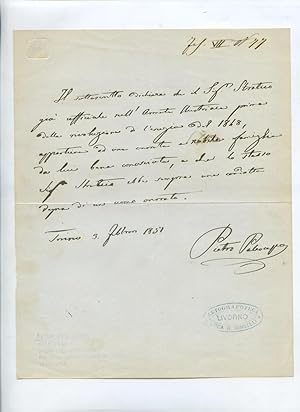 Il sottoscritto dichiara che il Sig.r Stratico
già ufficiale nell'Armata Austriaca prima
della rivoluzione di Venezia del 1848,
appartiene ad una onesta e nobile famiglia
da lui bene conosciuta, e che lo stesso
Sig.r Stratico ebbe sempre una condotta
degna di un uomo onorato.
Torino 3. febbraio 1851
LIVORNO